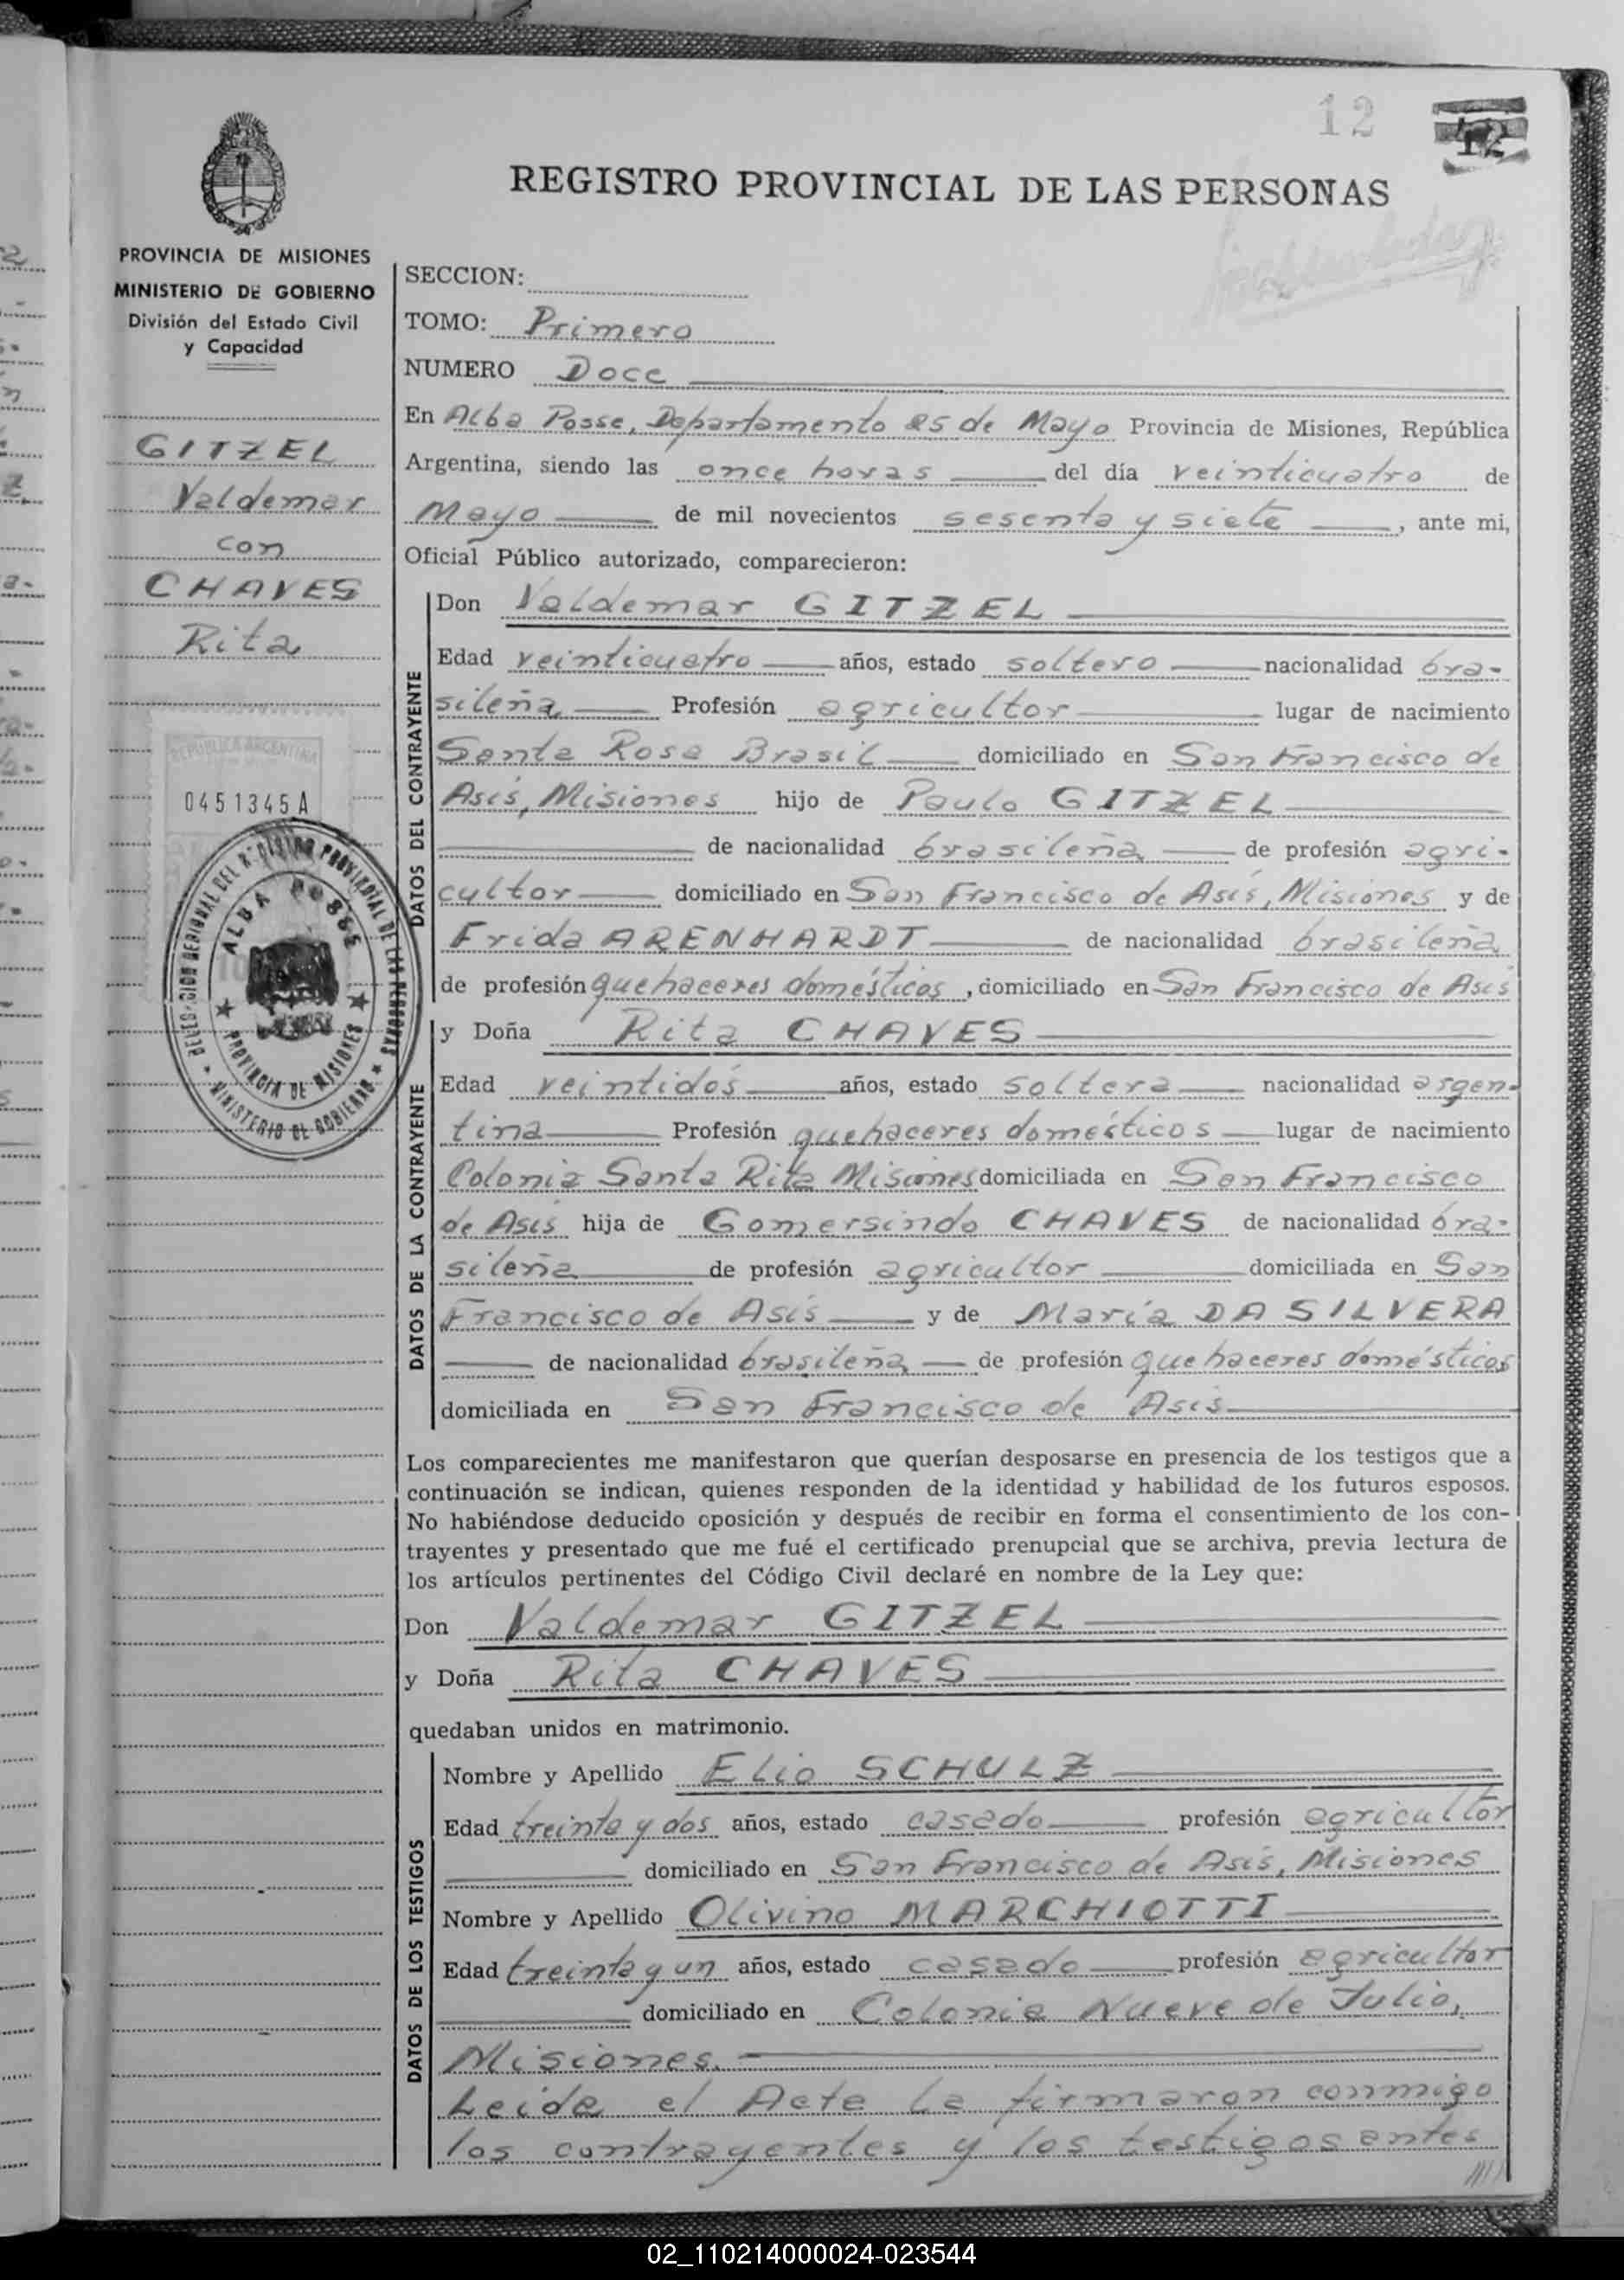 12
REGISTRO PROVINCIAL DE LAS PERSONAS
PROVINCIA DE MISIONES
MINISTERIO DE GOBIERNO
División del Estado Civil
y Capacidad
GITZEL
Valdemar
con
CHAVES
Rita
REPUBLICA ARGENTINA
0451345A
DELEGACION REGIONAL DEL REGISTRO PROVINCIAL DE LAS PERSONAS
ALBA POSSE
PROVINCIA DE MISIONES
MINISTERIO DE GOBIERNO
SECCION:
TOMO: Primero
NUMERO Doce
En Alba Posse, Departamento 25 de Mayo Provincia de Misiones, República
Argentina, siendo las once horas del día veinticuatro de
Mayo de mil novecientos sesenta y siete, ante mi,
Oficial Público autorizado, comparecieron:
DATOS DEL CONTRAYENTE
Don Valdemar GITZEL
Edad veinticuatro años, estado soltero nacionalidad bra-
sileña Profesión agricultor lugar de nacimiento
Santa Rosa Brasil domiciliado en San Francisco de
Asís, Misiones hijo de Paulo GITZEL
de nacionalidad brasileña de profesión agri-
cultor domiciliado en San Francisco de Asís, Misiones y de
Frida ARENHARDT de nacionalidad brasileña
de profesión quehaceres domésticos, domiciliado en San Francisco de Asís
DATOS DE LA CONTRAYENTE
y Doña Rita CHAVES
Edad veintidós años, estado soltera nacionalidad argen-
tina Profesión quehaceres domésticos lugar de nacimiento
Colonia Santa Rita Misiones domiciliada en San Francisco
de Asís hija de Gomersindo CHAVES de nacionalidad bra-
sileña de profesión agricultor domiciliada en San
Francisco de Asís y de María DA SILVERA
de nacionalidad brasileña de profesión quehaceres domésticos
domiciliada en San Francisco de Asís
Los comparecientes me manifestaron que querían desposarse en presencia de los testigos que a
continuación se indican, quienes responden de la identidad y habilidad de los futuros esposos.
No habiéndose deducido oposición y después de recibir en forma el consentimiento de los con-
trayentes y presentado que me fué el certificado prenupcial que se archiva, previa lectura de
los artículos pertinentes del Código Civil declaré en nombre de la Ley que:
Don Valdemar GITZEL
y Doña Rita CHAVES
quedaban unidos en matrimonio.
DATOS DE LOS TESTIGOS
Nombre y Apellido Elio SCHULZ
Edad treinta y dos años, estado casado profesión agricultor
domiciliado en San Francisco de Asís, Misiones
Nombre y Apellido Olivino MARCHIOTTI
Edad treinta y un años, estado casado profesión agricultor
domiciliado en Colonia Nueve de Julio,
Misiones.
Leida el Acta la firmaron conmigo
los contrayentes y los testigos antes
02_110214000024-023544